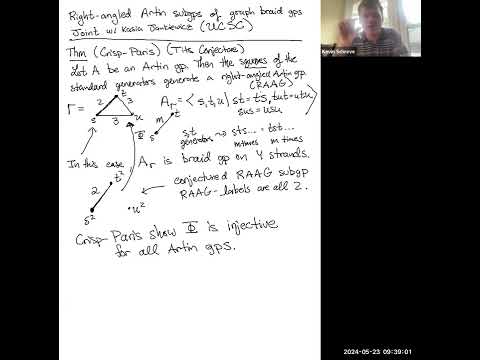 Right-angled Artin subgps of graph braid gps
Joint w/ Kasia Jankiewicz (UCSC)
Thm (Crisp-Paris) (Tits Conjecture)
Let A be an Artin gp. Then the squares of the
standard generators generate a right-angled Artin gp
(RAAG)
Γ = 2 t 3 s 3 u
A_Γ = < s, t, u | st = ts, tut = utu,
sus = usu
m t s
Φ
s,t generators ⇝ sts... = tst...
m times m times
In this case A_Γ is braid gp on 4 strands.
t²
2
s²
• u²
← conjectured RAAG subgp
RAAG - labels are all 2.
Crisp-Paris show Φ is injective
for all Artin gps.
Kevin Schreve
2024-05-23 09:39:01